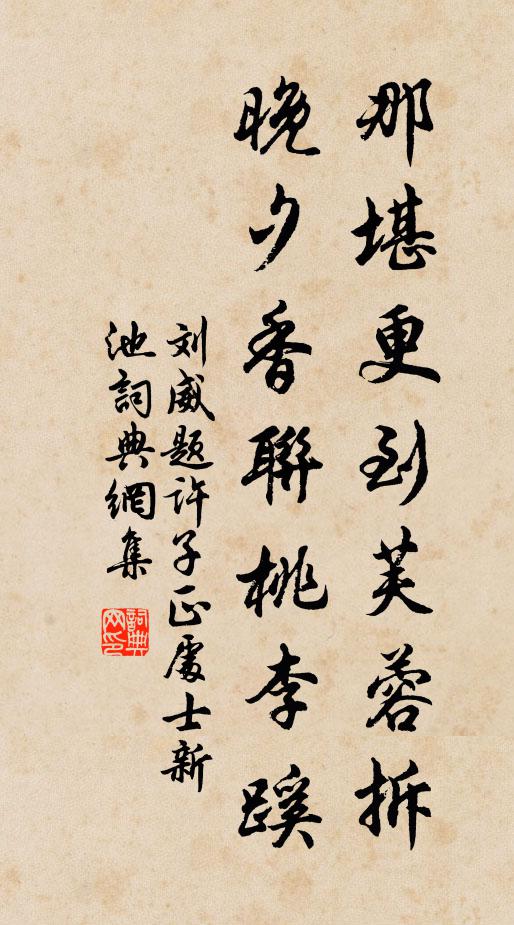 那堪更到芙蓉拆
晚夕香聯桃李蹊
刘威题许子正處士新
池詞典網集
詞典
网印